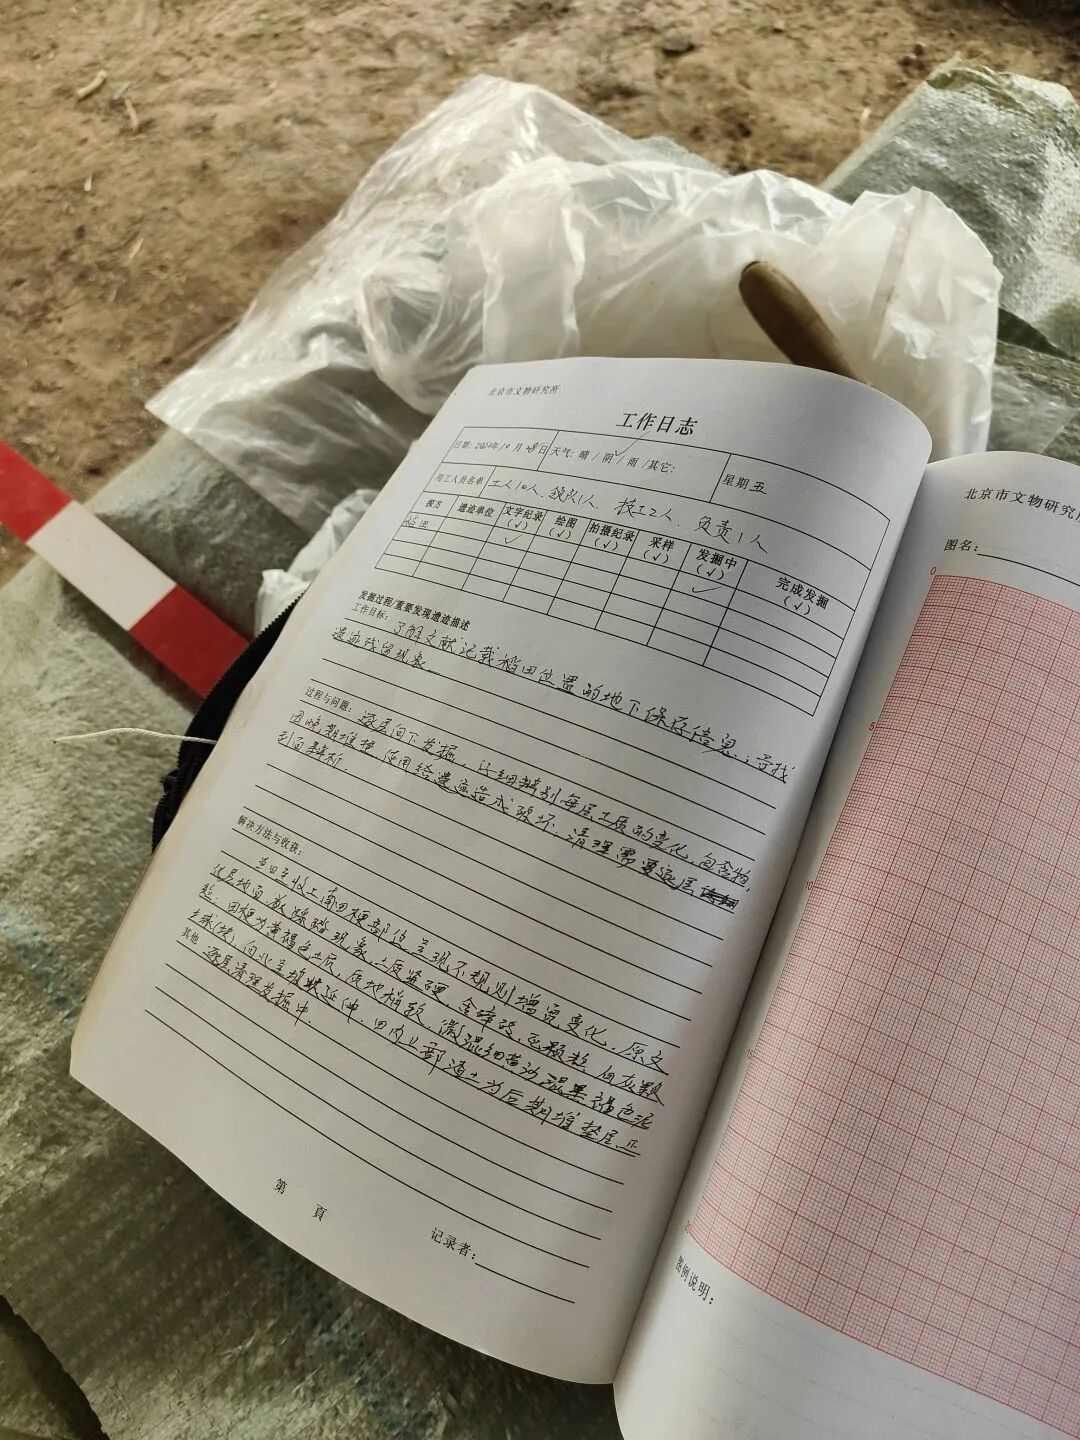 北京市文物研究所
工作日志
日期: 2022年10月28日 天气: 晴 / 阴 / 雨 / 其它: 星期 五
用工人员名单 工人10人、领队1人、技工2人、负责1人
探方 遗迹单位 文字纪录(√) 绘图(√) 拍摄纪录(√) 采样(√) 发掘中(√) 完成发掘(√)
稻田 ✓ ✓
发掘过程/重要发现遗迹描述
工作目标: 了解文献记载稻田位置的地下保存信息,寻找
遗迹残留现象
过程与问题: 逐层向下发掘,仔细辨别每层土质的变化,包含物,
因晚期堆垫 使用 造成破坏 清理需要逐层
剖面 解析.
解决方法与收获:
当日 收工 南田埂部位呈现不规则增宽变化,原文
化层地面 踩踏现象,土质坚硬,含 砖、瓦颗粒、白灰颗
粒;田埂为黄褐色土质,质地稍致,微混细 混黑褐色泥
土球(块),向北呈坡状延伸.田内上部渣土为后期堆垫层,正
其他 逐层清理发掘中.
第
頁
记录者:
北京市文物研究所
图名:
0
5
10
图例说明: